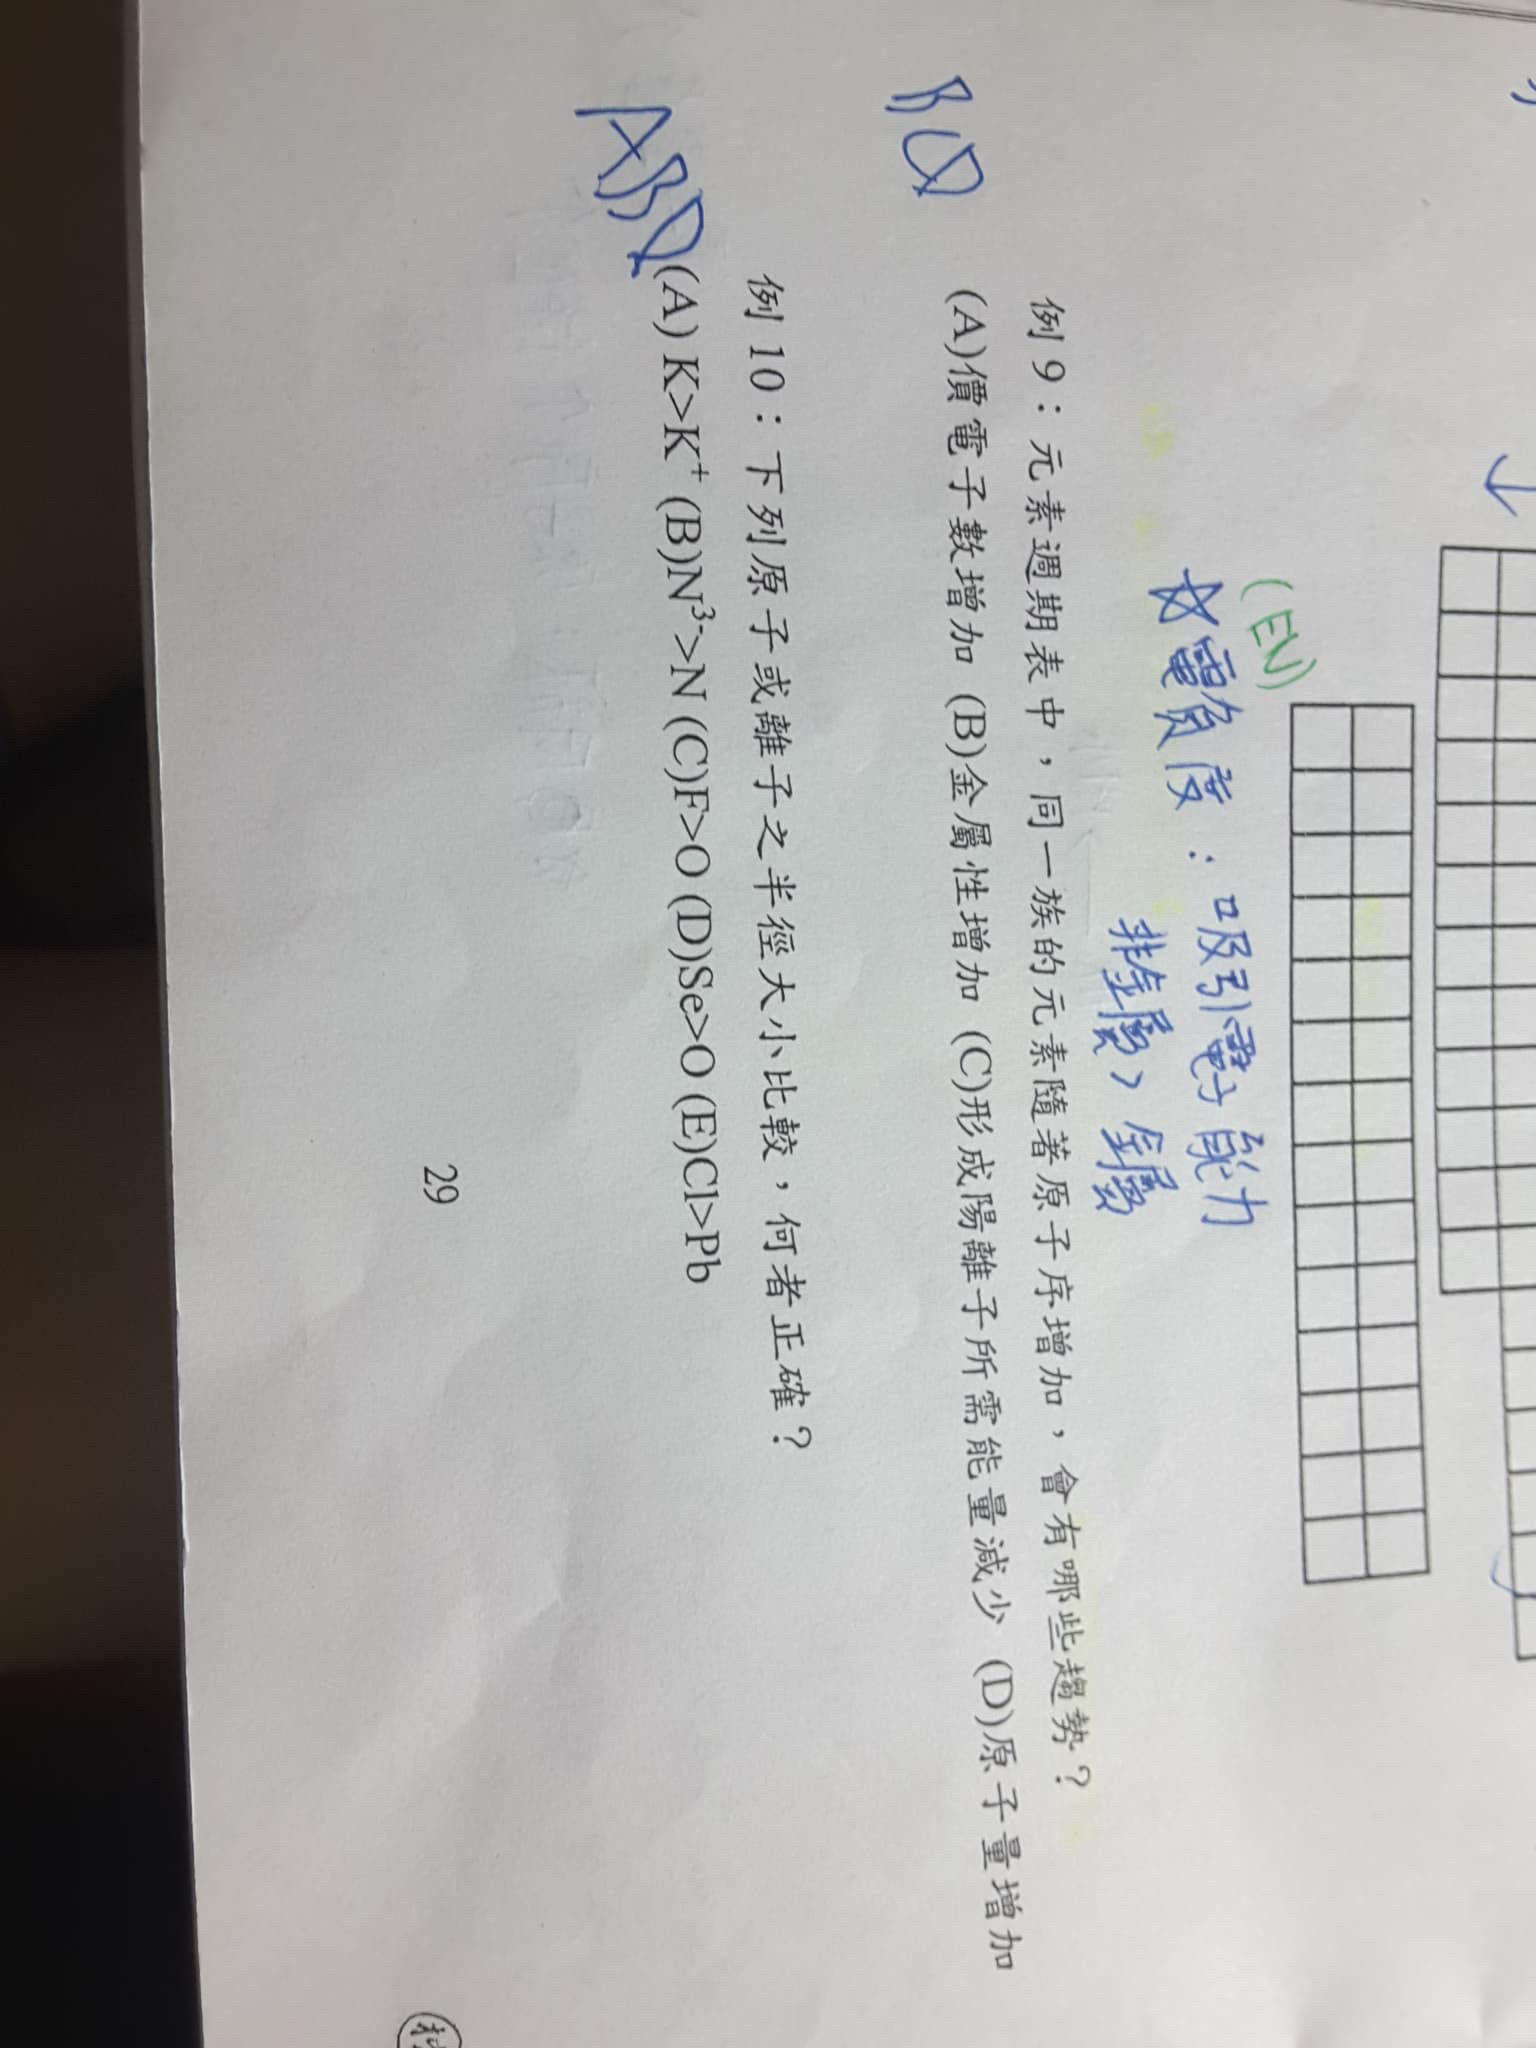 (EN)
☆電負度：吸引電子能力
非金屬＞金屬
例 9：元素週期表中，同一族的元素隨著原子序增加，會有哪些趨勢？
BCD
(A)價電子數增加 (B)金屬性增加 (C)形成陽離子所需能量減少 (D)原子量增加
例 10：下列原子或離子之半徑大小比較，何者正確？
ABD
(A) K>K⁺ (B)N³⁻>N (C)F>O (D)Se>O (E)Cl>Pb
29